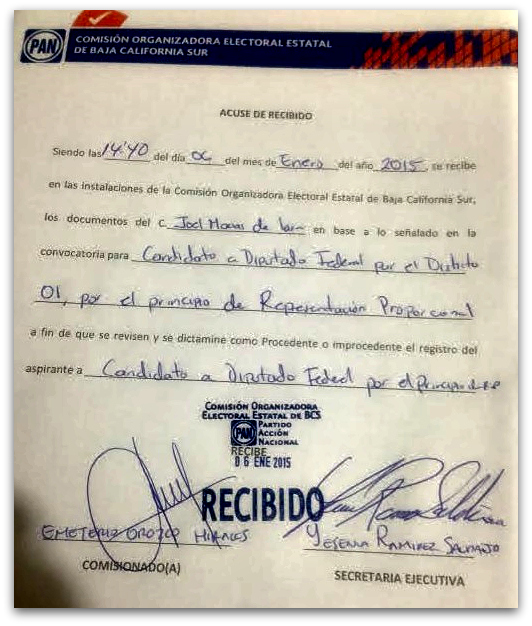 PAN
COMISIÓN ORGANIZADORA ELECTORAL ESTATAL
DE BAJA CALIFORNIA SUR
ACUSE DE RECIBIDO
Siendo las 14:40 del día 06 del mes de Enero del año 2015, se recibe
en las instalaciones de la Comisión Organizadora Electoral Estatal de Baja California Sur,
los documentos del C. Joel de en base a lo señalado en la
convocatoria para Candidato a Diputado Federal por el Distrito
01, por el principio de Representación Proporcional
a fin de que se revisen y se dictamine como Procedente o improcedente el registro del
aspirante a Candidato a Diputado Federal por el principio de RP
COMISIÓN ORGANIZADORA
ELECTORAL ESTATAL DE BCS
PAN PARTIDO
ACCIÓN
NACIONAL
RECIBE
06 ENE 2015
RECIBIDO
EMETERIO OROZCO HIRALES
YESENIA RAMIREZ
COMISIONADO(A)
SECRETARIA EJECUTIVA